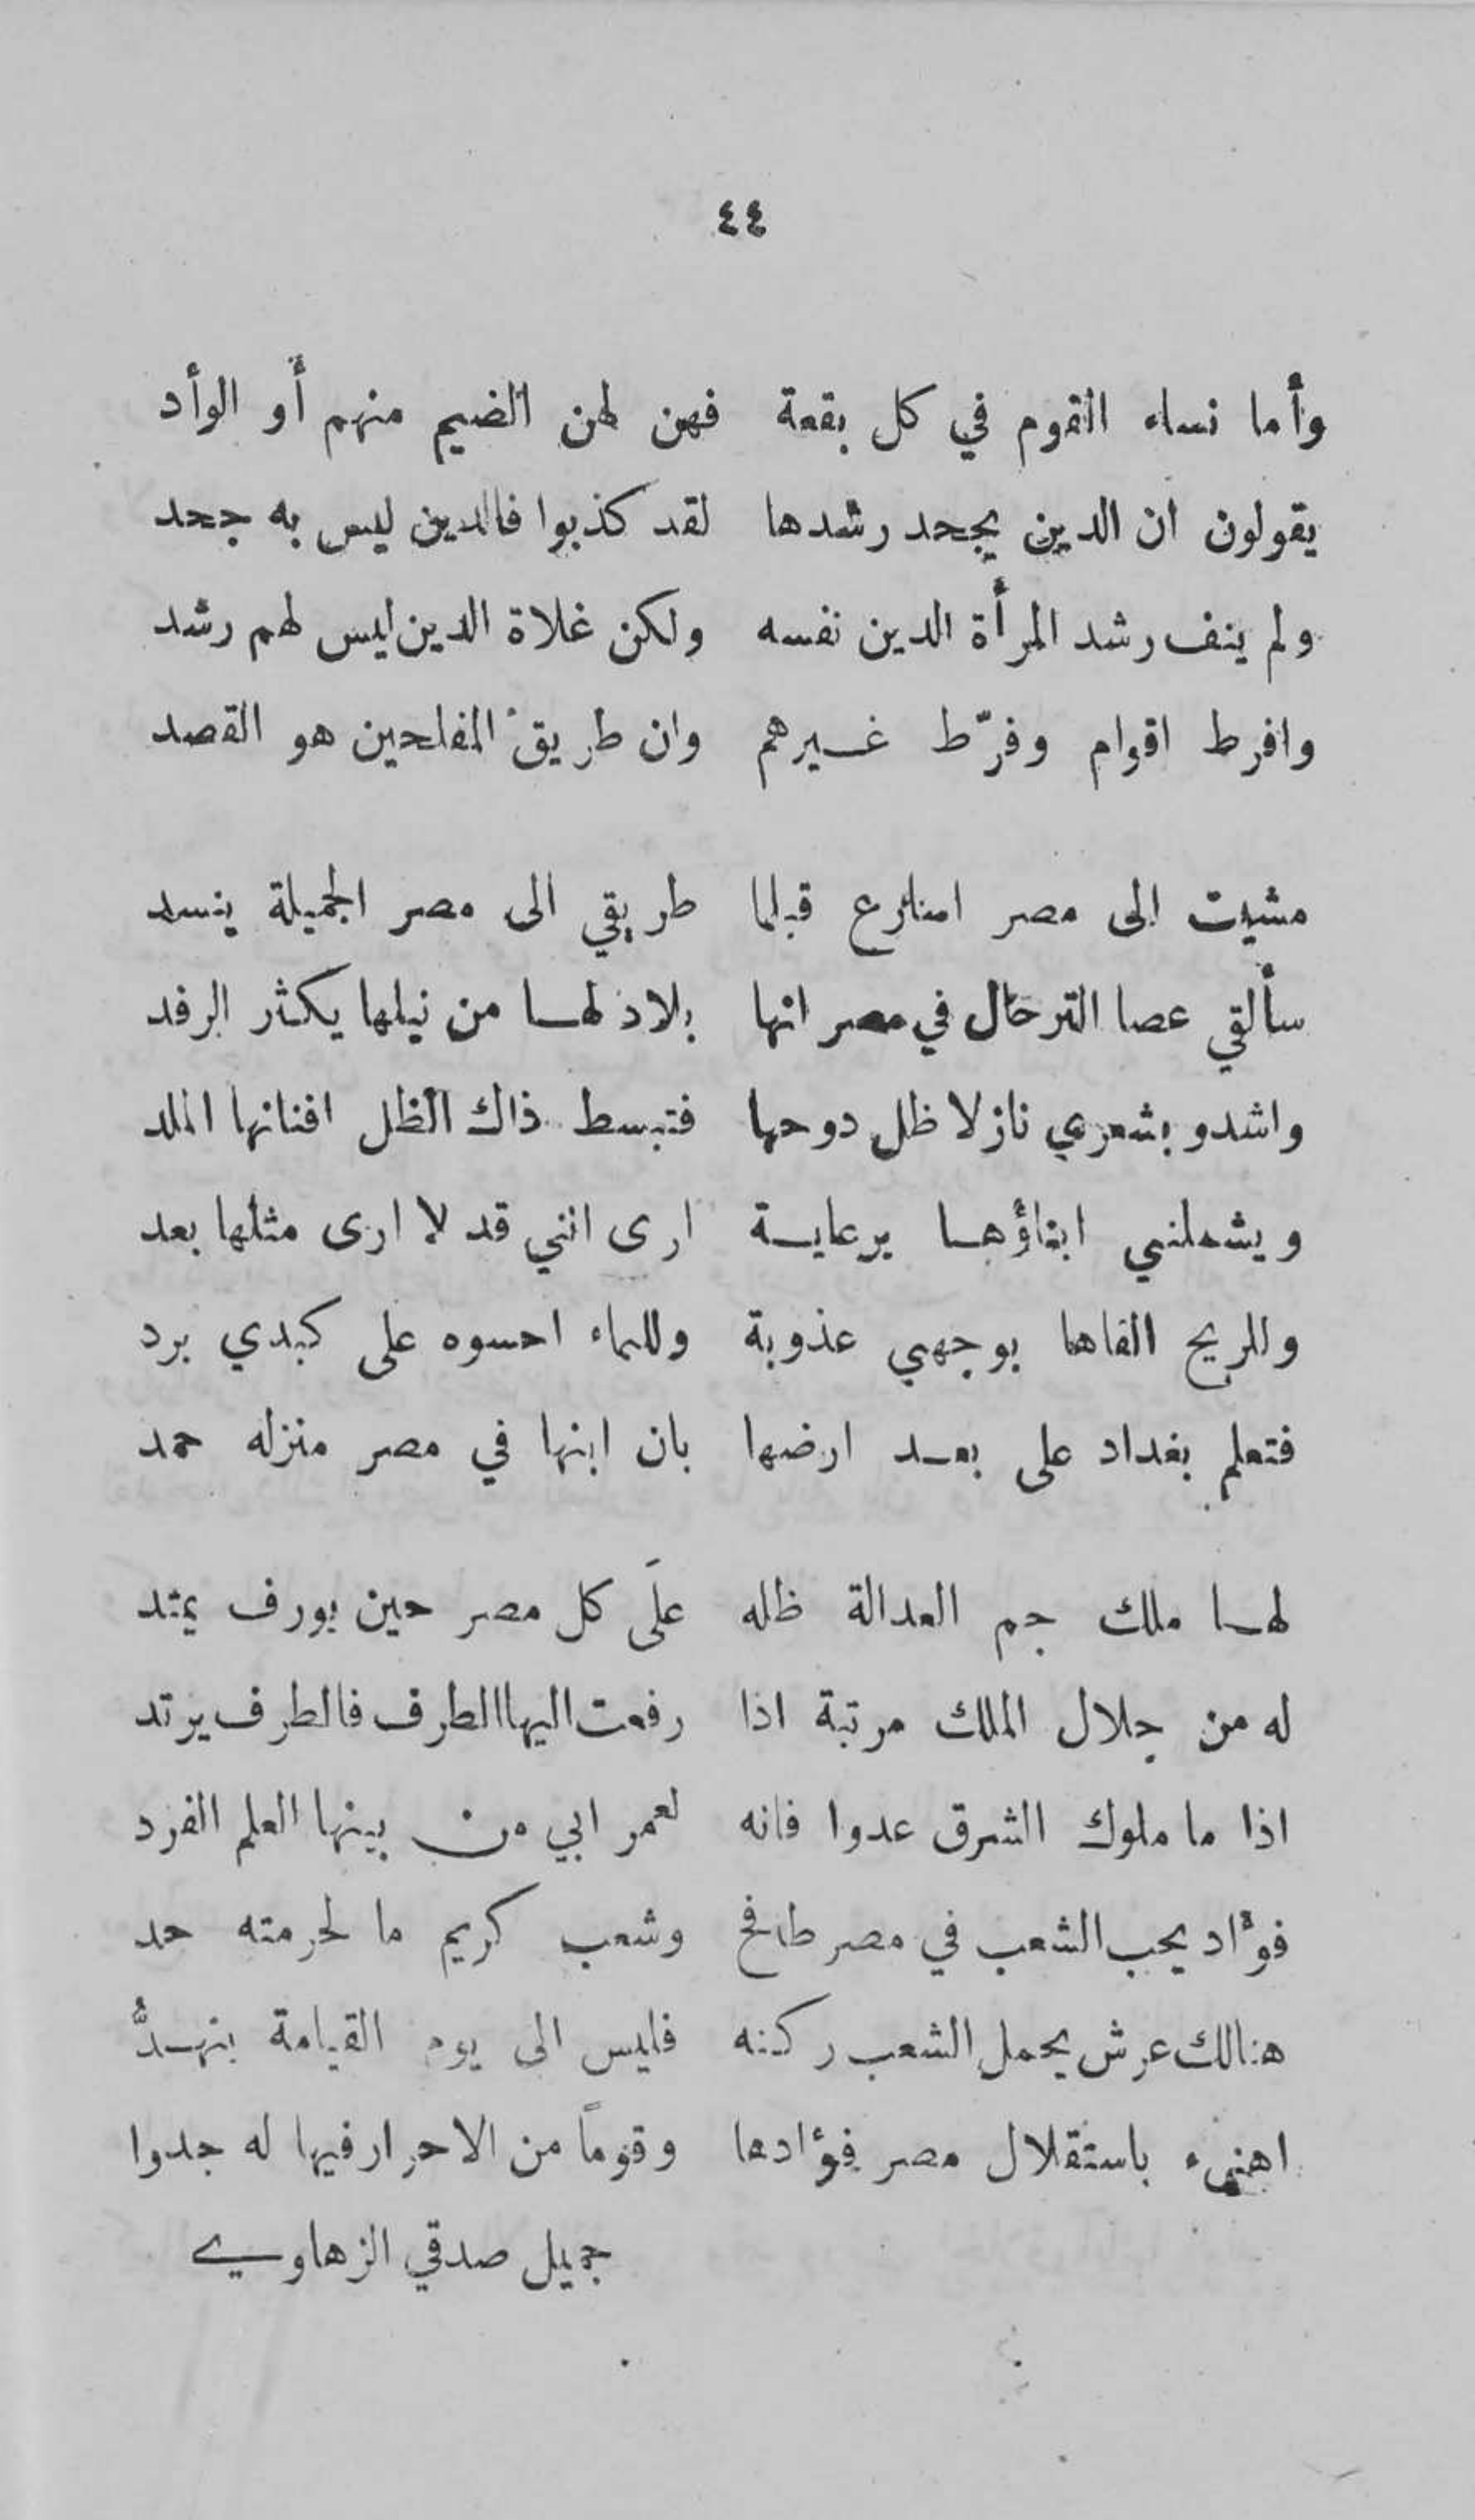 ٤٤
وأما نساء القوم في كل بقعة فهن لهن الضيم منهم أو الوأد
يقولون ان الدين يجحد رشدها لقد كذبوا فالدين ليس به جحد
ولم ينف رشد المرأة الدين نفسه ولكن غلاة الدين ليس لهم رشد
وافرط اقوام وفرّط غيرهم وان طريق المفلحين هو القصد
مشيت الى مصر امنازع قبلما طريقي الى مصر الجميلة ينسد
سألقي عصا الترحال في مصر انها بلاد لها من نيلها يكثر الرفد
واشدو بشعري نازلا ظل دوحها فتبسط ذاك الظل افنانها الملد
ويشملني ابناؤها برعاية ارى انني قد لا ارى مثلها بعد
وللريح القاها بوجهي عذوبة وللماء احسوه على كبدي برد
فتعلم بغداد على بعد ارضها بان ابنها في مصر منزله حمد
لها ملك جم العدالة ظله علَى كل مصر حين يورف يمتد
له من جلال الملك مرتبة اذا رفعت اليها الطرف فالطرف يرتد
اذا ما ملوك الشرق عدوا فانه لعمر ابي من بينها العلم الفرد
فؤاد يحب الشعب في مصر طافح وشعب كريم ما لحرمته حد
هنالك عرش يحمل الشعب ركنه فليس الى يوم القيامة ينهدُّ
اهنىء باستقلال مصر فؤادها وقوماً من الاحرار فيها له جدوا
جميل صدقي الزهاوي